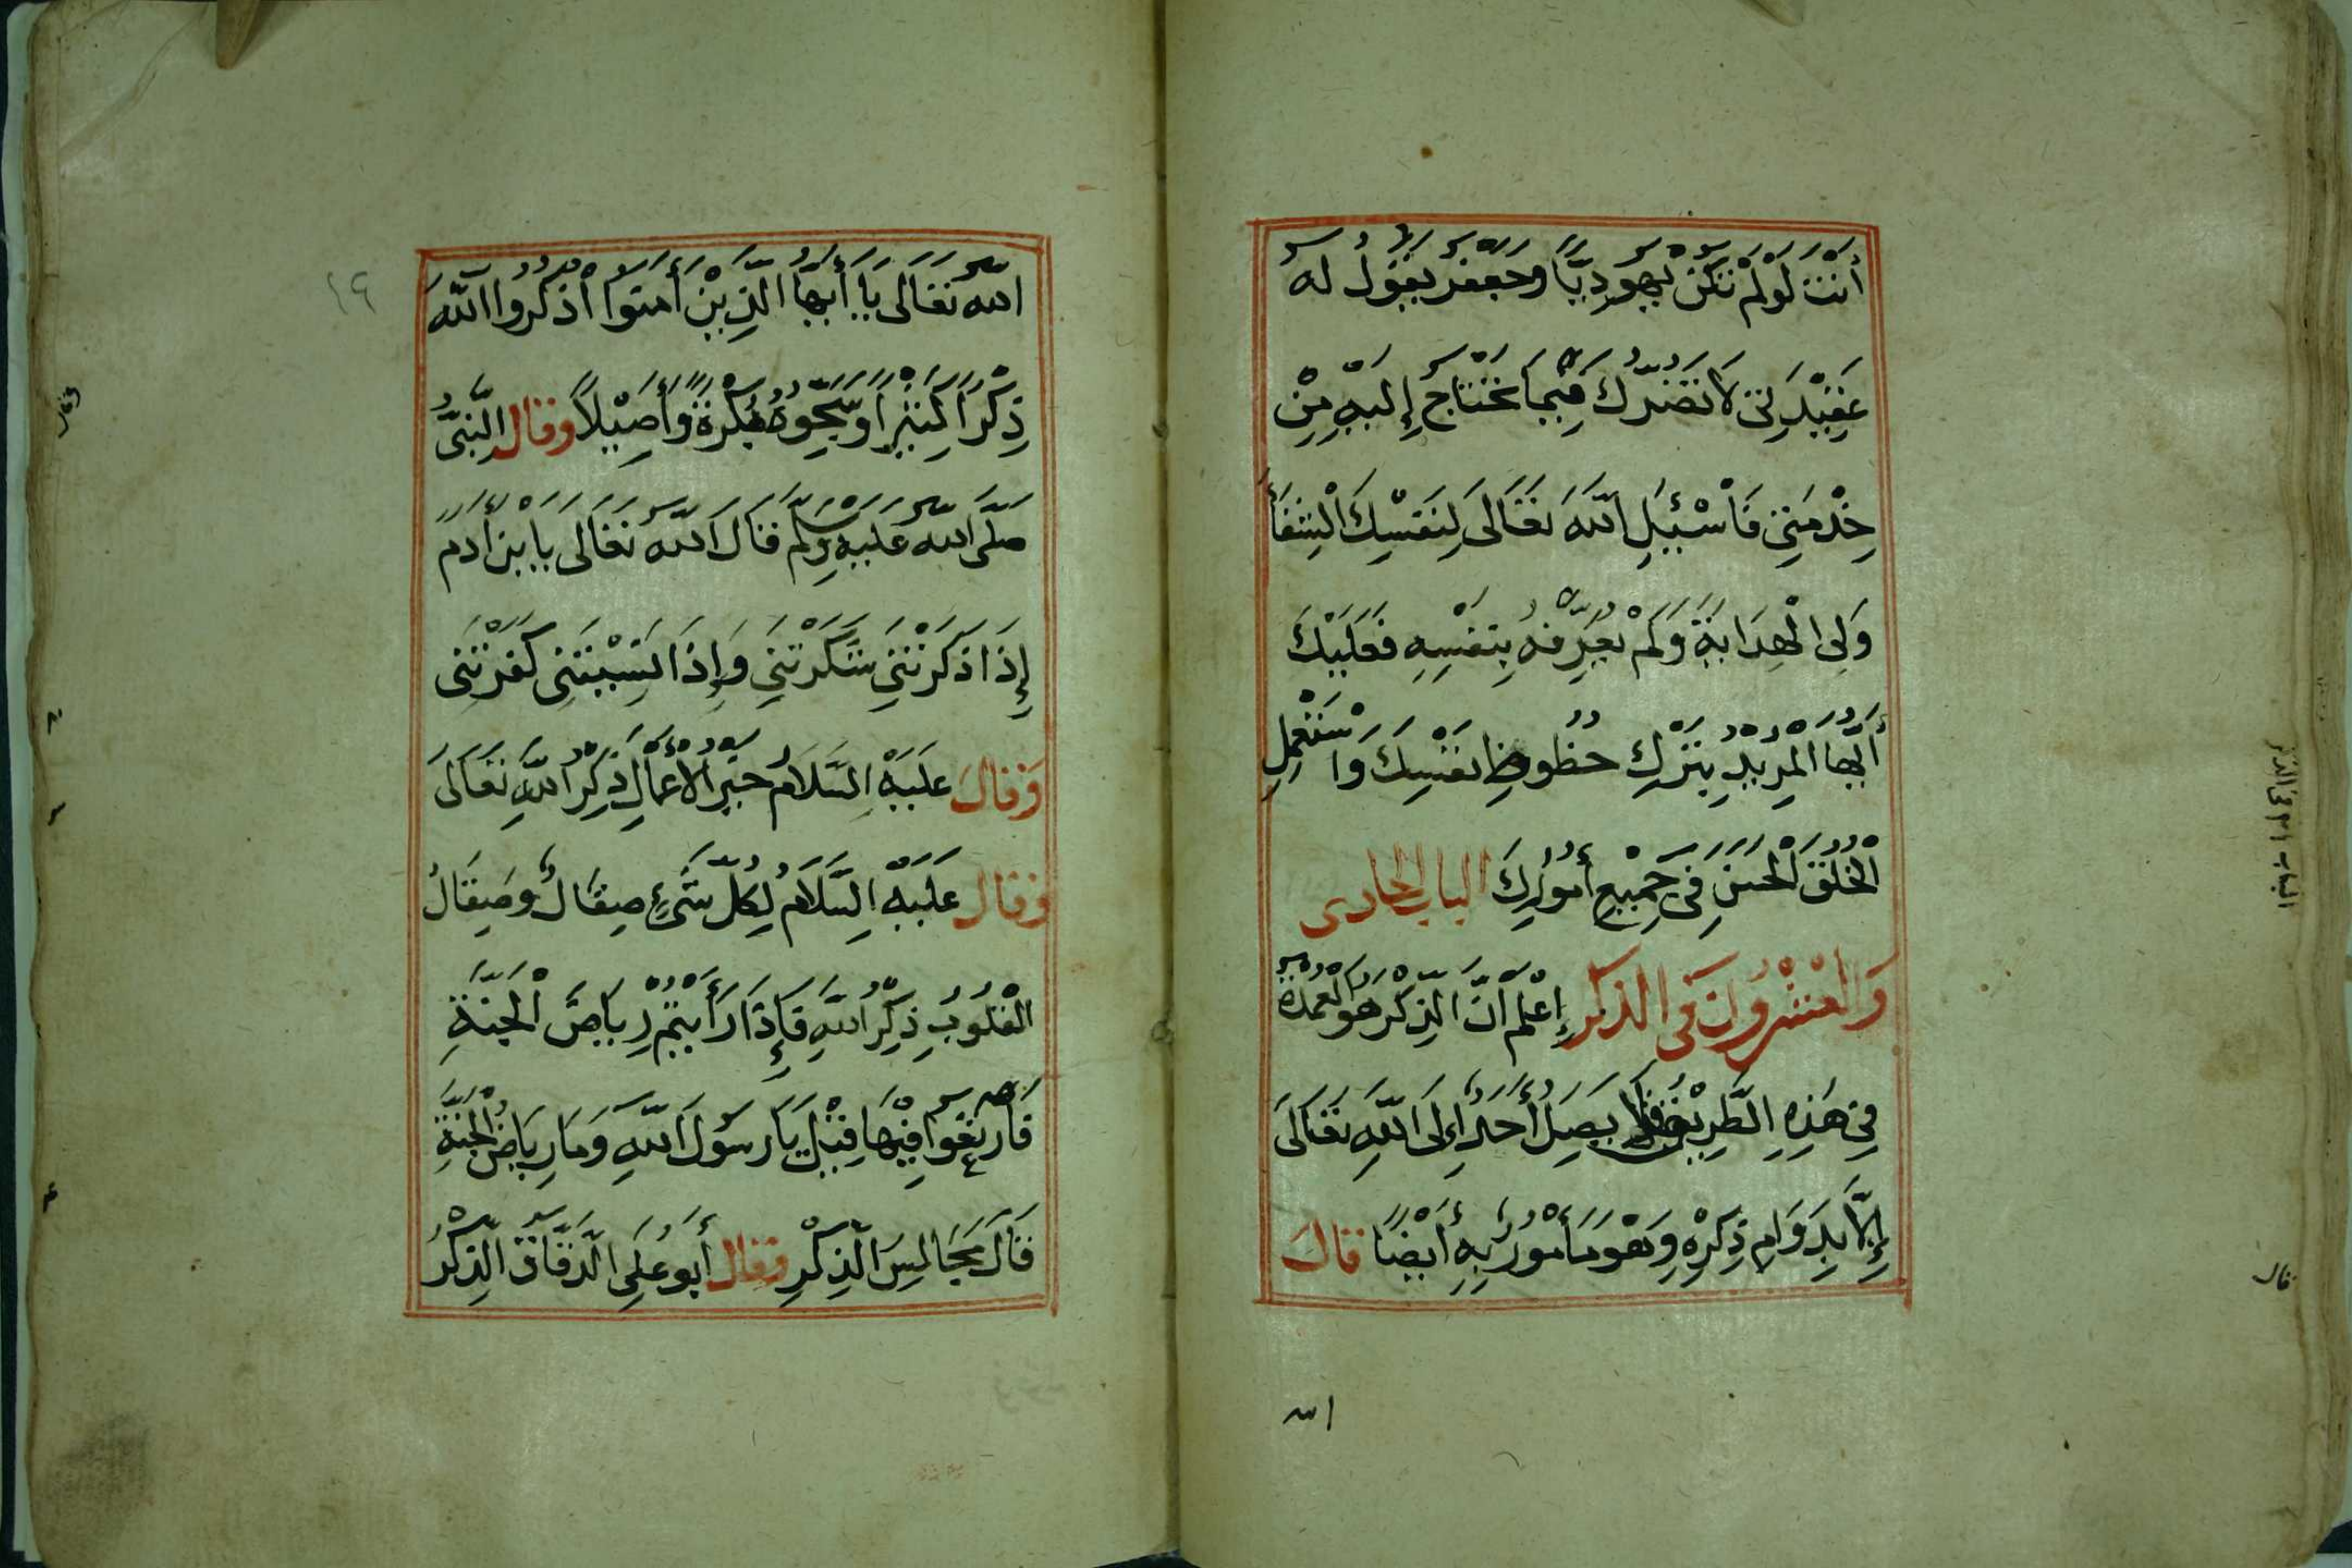 أَنْتَ لَوْ لَمْ تَكُنْ يَهُودِيًّا وَجَعْفَرُ يَقُولُ لَهُ
عَقِيْدَتِي لَا تَضُرُّكَ فِيْمَا تَحْتَاجُ إِلَيْهِ مِنْ
خِدْمَتِي فَاسْئَلِ اللّٰهَ تَعَالَى لِنَفْسِكَ الْشِفَاءَ
وَلِى الْهِدَايَةَ وَلَمْ يُعَرِّفْهُ بِنَفْسِهِ فَعَلَيْكَ
أَيُّهَا الْمُرِيْدُ بِتَرْكِ حُظُوظِ نَفْسِكَ وَاسْتَعْمِلِ
الْخُلُقَ الْحَسَنَ فِى جَمِيْعِ أُمُوْرِكَ الباب الحادى
وَالْعِشْرُونَ فِى الذكر إِعْلَمْ اَنَّ الذِّكْرَ هُوَ الْعُمْدَةُ
فِي هٰذِهِ الطَّرِيْقِ فَلَا يَصِلُ أَحَدٌ إِلَى اللّٰهِ تَعَالَى
إِلَّا بِدَوَامِ ذِكْرِهِ وَهُوَ مَأْمُوْرٌ بِهِ أَيْضًا قَالَ
الله
الباب ٢١ فى الذكر
قال
١٩
اللّٰهُ تَعَالَى يَا أَيُّهَا الَّذِيْنَ أَمَنُوا اذْكُرُوا اللّٰهَ
ذِكْرًا كَثِيْرًا وَسَبِّحُوهُ بُكْرَةً وَأَصِيْلًا وقال النَّبِىُّ
صَلَّى اللّٰهُ عَلَيْهِ وَسَلَّمَ قَالَ اللّٰهُ تَعَالَى يَا ابْنَ أَدَمَ
إِذَا ذَكَرْتَنِي شَكَرْتَنِي وَإِذَا نَسِيْتَنِى كَفَرْتَنِى
وَقَالَ عَلَيْهِ السَّلَامُ خَيْرُ الْأَعْمَالِ ذِكْرُ اللّٰهِ تَعَالَى
وقال عَلَيْهِ السَّلَامُ لِكُلِّ شَىْءٍ صِقَالٌ وَصِقَالُ
الْقُلُوْبِ ذِكْرُ اللّٰهِ فَإِذَا رَأَيْتُمْ رِيَاضَ الْجَنَّةِ
فَارْتَعُوا فِيْهَا قِيْلَ يَا رَسُوْلَ اللّٰهِ وَمَا رِيَاضُ الْجَنَّةِ
قَالَ مَجَالِسُ الذِّكْرِ وقال أَبُو عَلِى الدَّقَّاقُ الذِّكْرُ
وقال